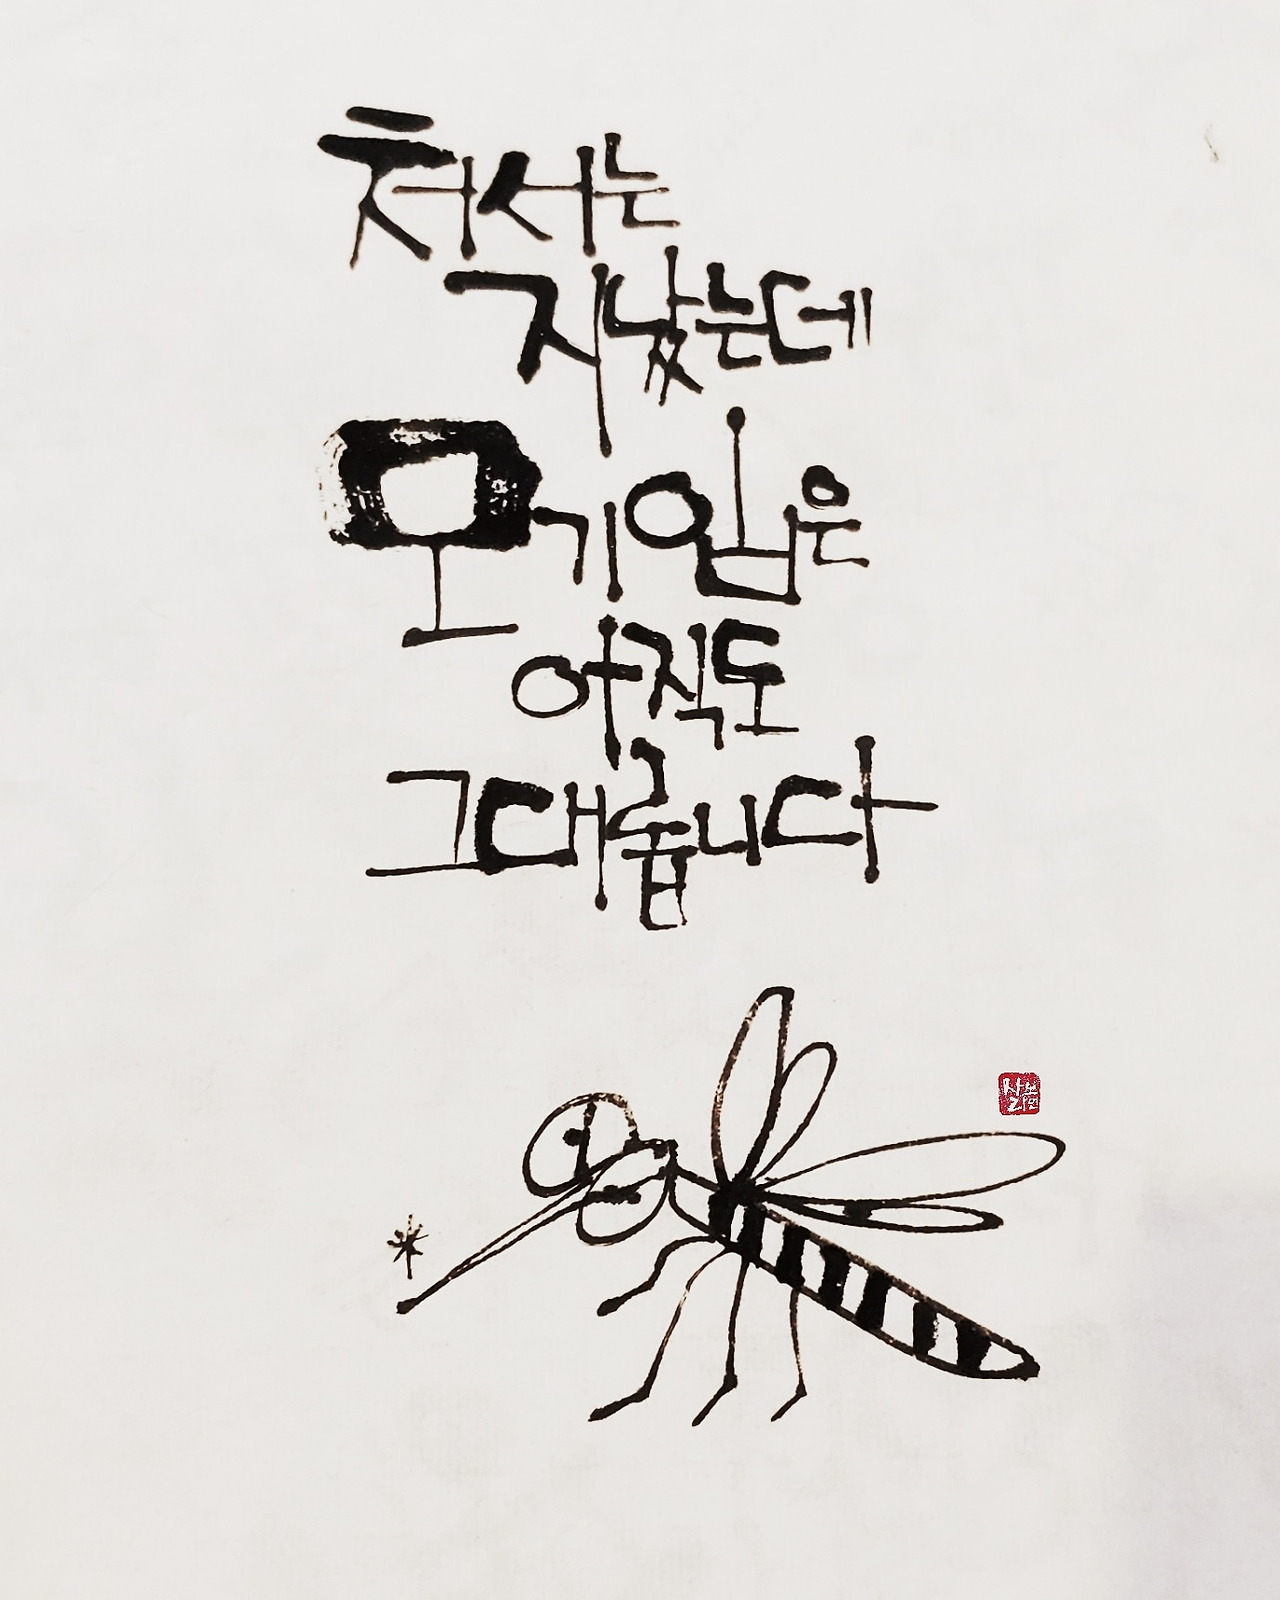 처서는
지났는데
모기입은
아직도
그대롭니다